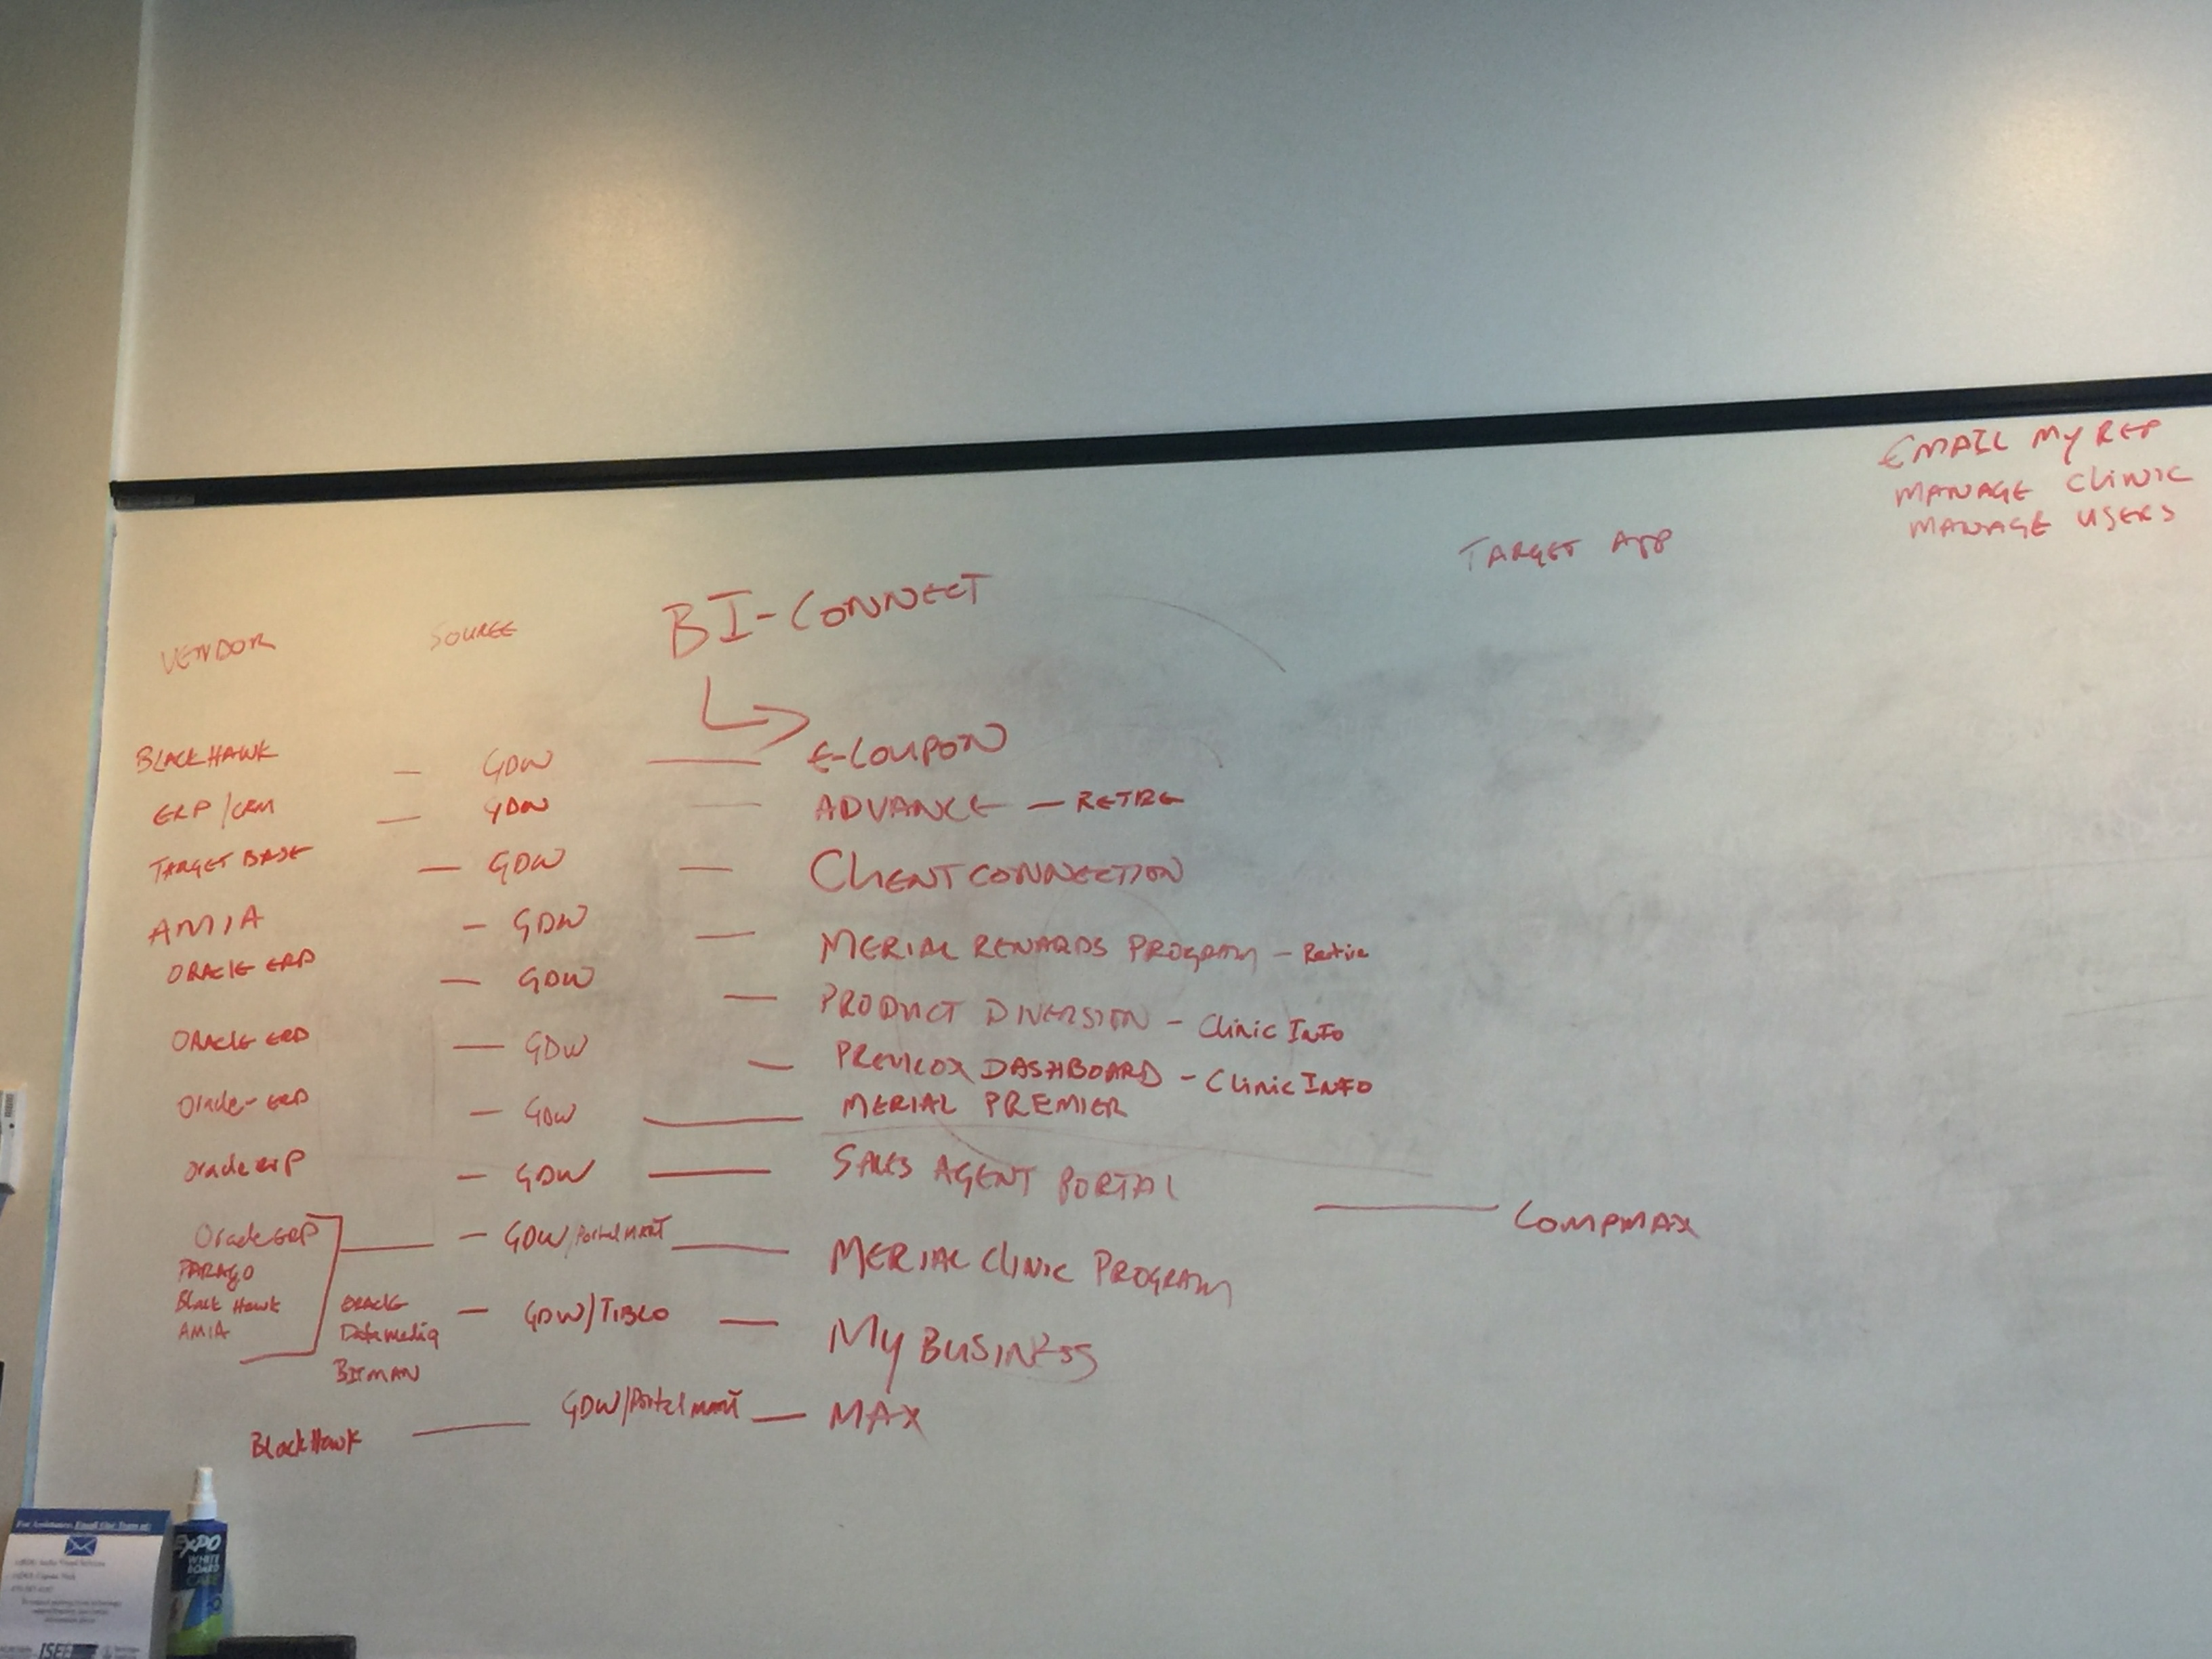 EMAIL MY REP
MANAGE CLINIC
MANAGE USERS
TARGET APP
BI-CONNECT
VENDOR SOURCE
BLACKHAWK — GDW — E-COUPON
ERP/CRM — GDW — ADVANCE — RETIRE
TARGET BASE — GDW — CLIENT CONNECTION
AMIA — GDW — MERIAL REWARDS PROGRAM - Retire
ORACLE ERP — GDW — PRODUCT DIVERSION - Clinic INFO
ORACLE ERP — GDW — PREVICOX DASHBOARD - Clinic INFO
Oracle-ERP — GDW — MERIAL PREMIER
oracle erp — GDW — SALES AGENT PORTAL — COMPMAX
Oracle ERP — GDW/Portal MART — MERIAL CLINIC PROGRAM
PARAGO
Black Hawk
AMIA
ORACLE — GDW/TIBCO — MY BUSINESS
Datamediq
BITMAN
BlackHawk — GDW/Portal MART — MAX
For Assistance, Email Our Team at:
EXPO
WHITE
BOARD
CARE